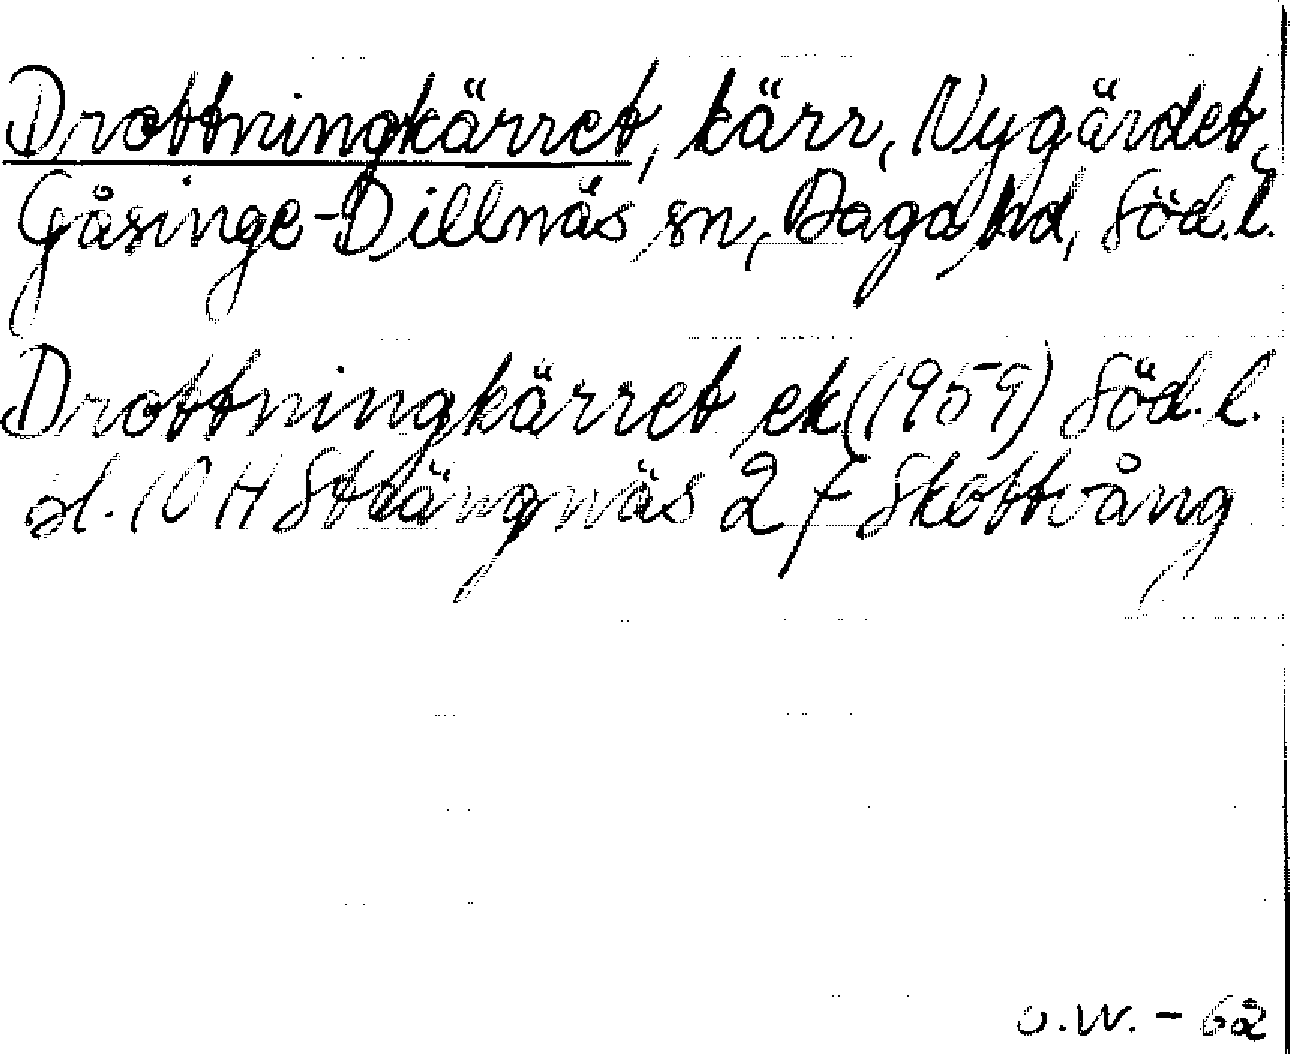 Drottningkärret, kärr, Nygärdet,
Gåsinge-Dillnäs sn, Daga hd, Söd.l.
Drottningkärret ek (1959) Söd.l.
bl. 10 H Strängnäs 2 f Skottvång
U.W. - 62